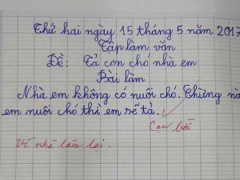 Thứ hai ngày 15 tháng 5 năm 2017
Tập làm văn
Đề: Tả con chó nhà em
Bài làm
Nhà em không có nuôi chó. Chừng nà
em nuôi chó thì em sẽ tả.
Về nhà làm lại.